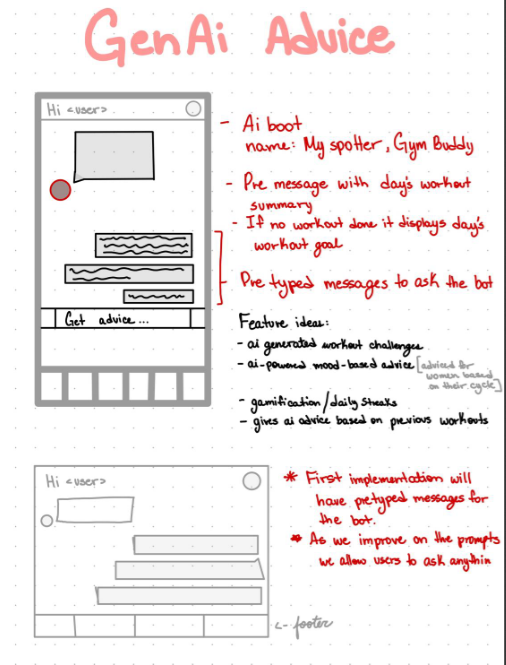 GenAi Advice
Hi <user>
Get advice...
- Ai boot
name: My spotter, Gym Buddy
- Pre message with day's workout
summary
- If no workout done it displays day's
workout goal
Pre typed messages to ask the bot
Feature ideas:
- ai generated workout challenges
- ai-powered mood-based advice [adviced for
women based
on their cycle]
- gamification/daily streaks
- gives ai advice based on previous workouts
Hi <user>
<-- footer
* First implementation will
have pretyped messages for
the bot.
* As we improve on the prompts
we allow users to ask anythin